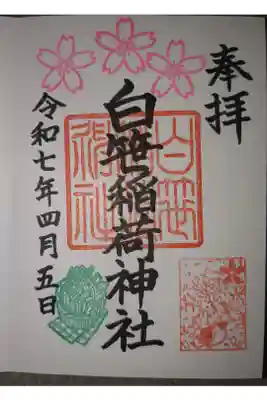 奉拝
白笹稲荷神社
令和七年四月五日
白笹
稲荷
神社